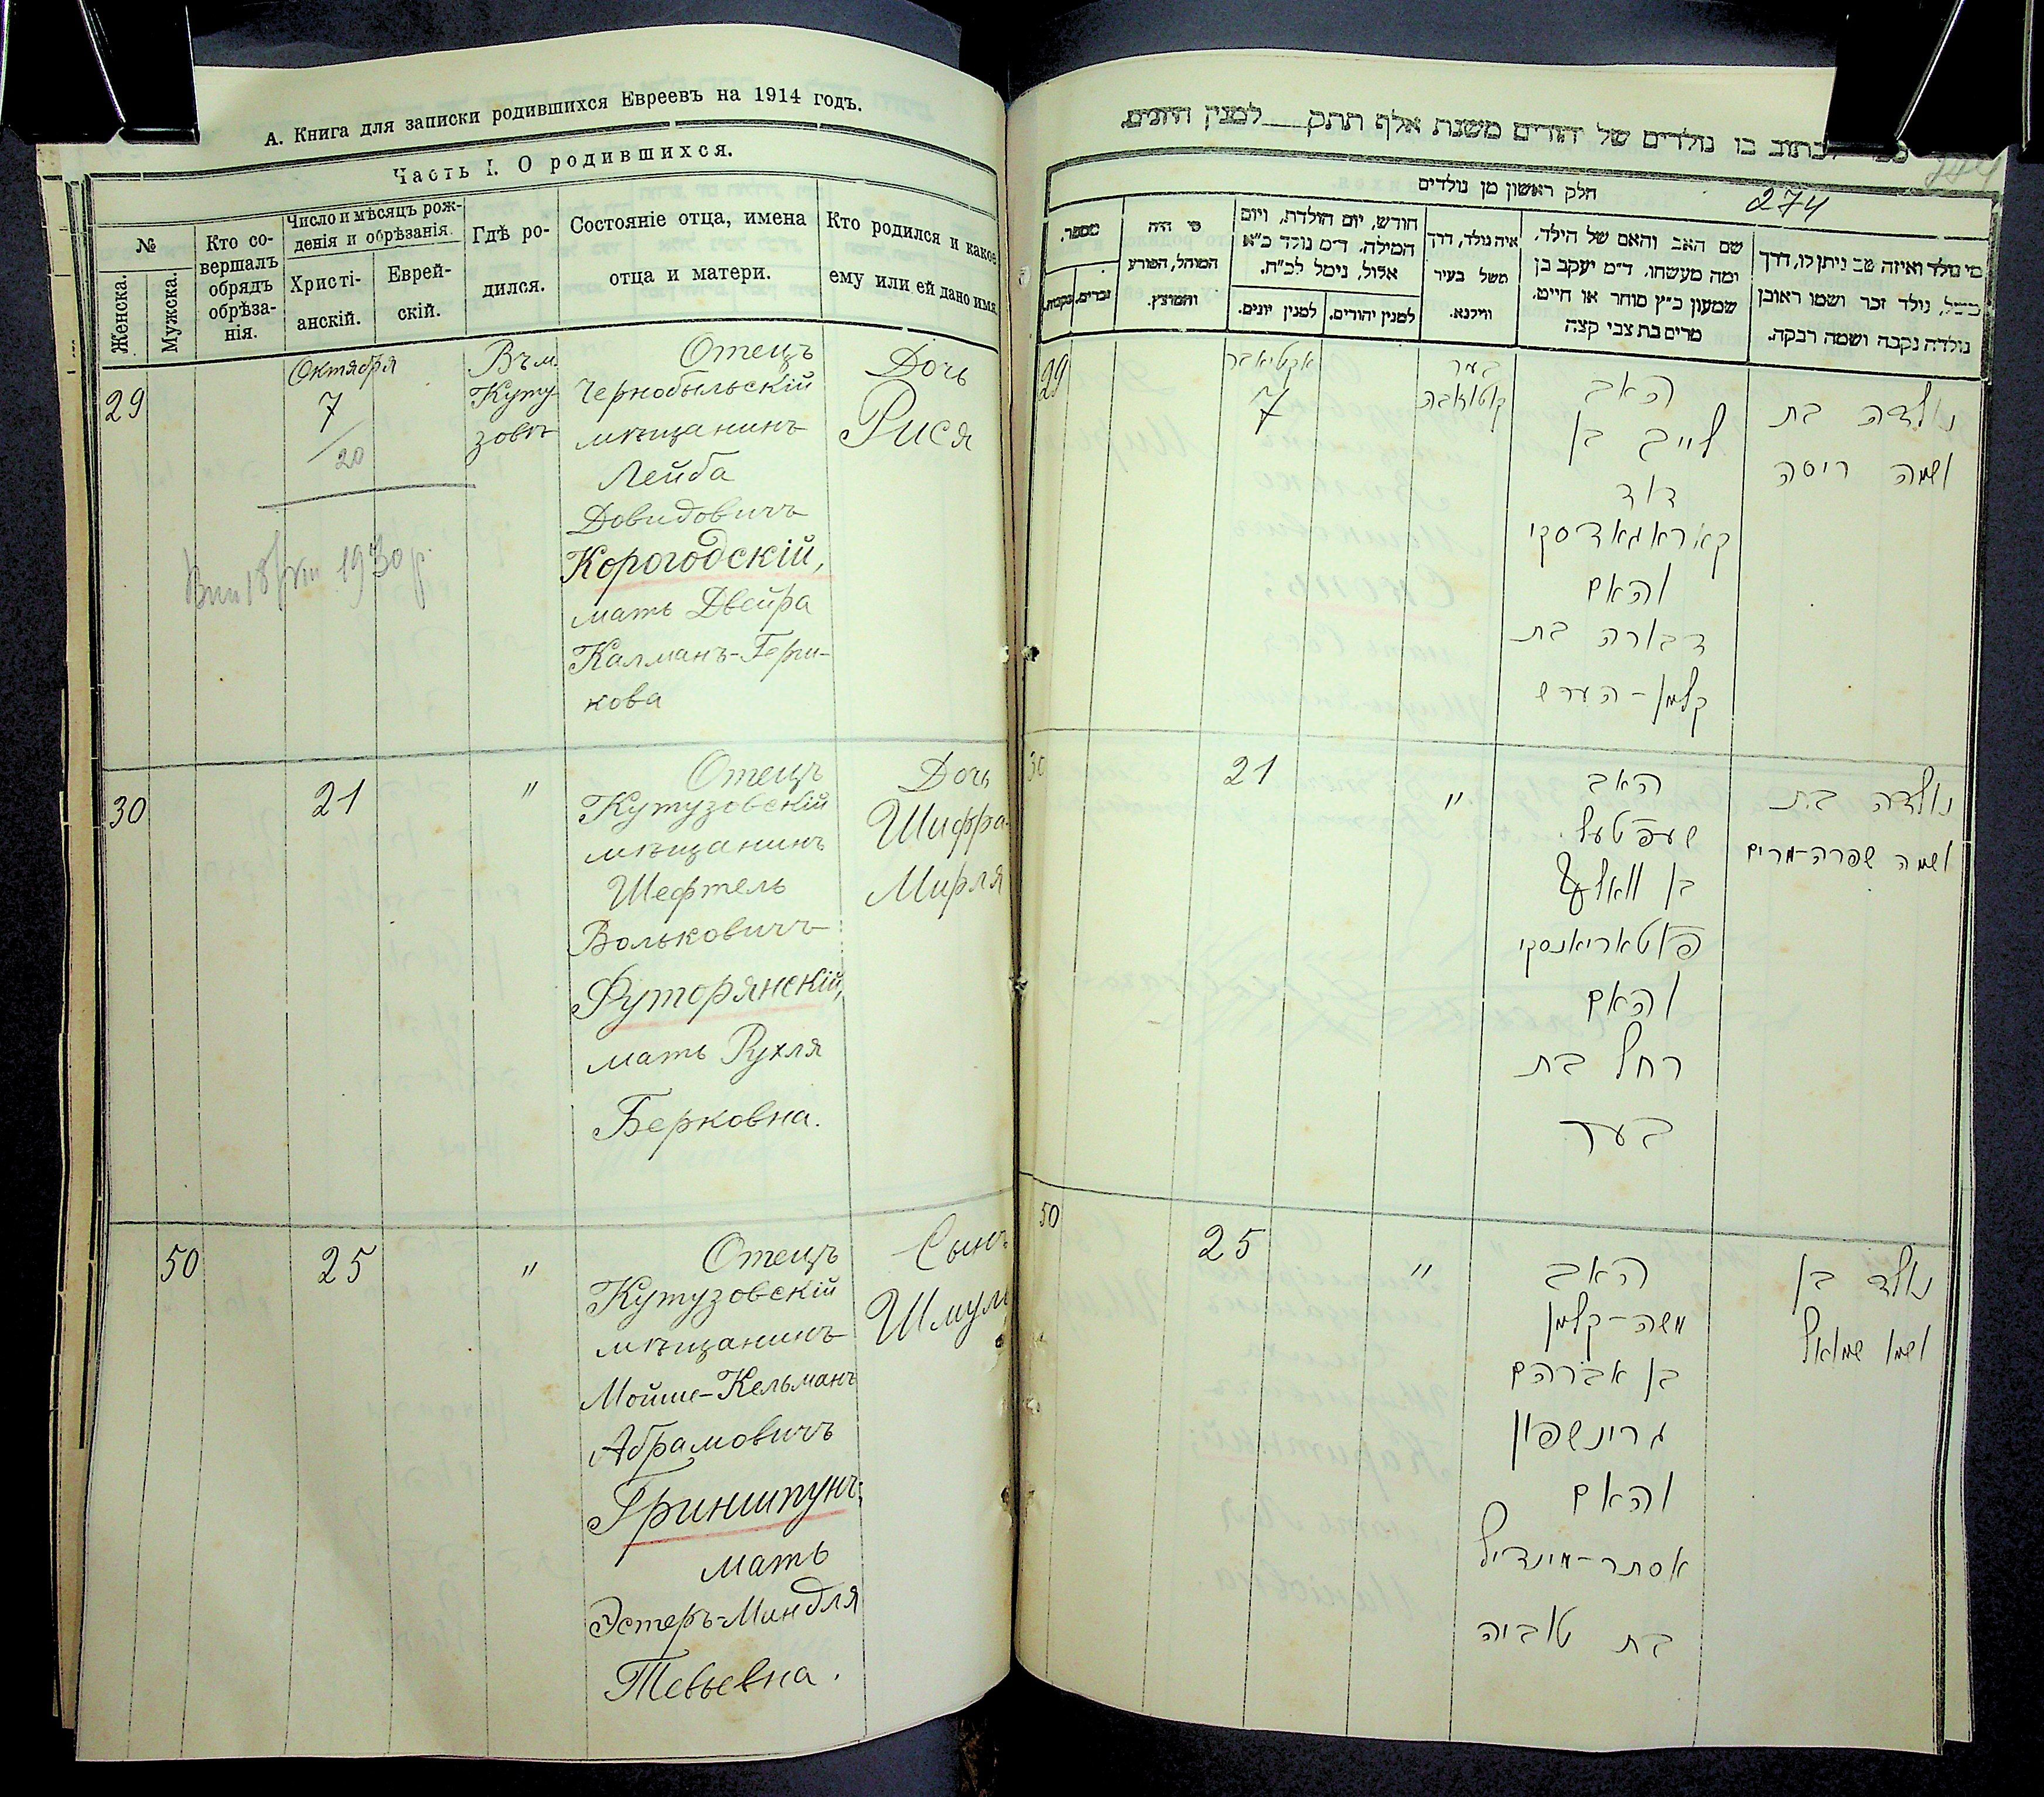 А. Книга для записки родившихся Евреевъ на 1914 годъ.
Часть I. О родившихся.
№
Женска.
Мужска.
Кто со-
вершалъ
обрядъ
обрѣза-
нія.
Число и мѣсяцъ рож-
денія и обрѣзанія.
Христі-
анскій.
Еврей-
скій.
Гдѣ ро-
дился.
Состояніе отца, имена
отца и матери.
Кто родился и какое
ему или ей дано имя
29
Октября
7
20
Въ м.
Куту-
зовѣ
Отецъ
Чернобыльскій
мѣщанинъ
Лейба
Довидовичъ
Корогодскій,
мать Двейра
Калманъ-Герш-
кова
Дочь
Рися
1930 р.
30
21
"
Отецъ
Кутузовскій
мѣщанинъ
Шефтель
Вольковичъ
Футорянскій,
мать Рухля
Берковна.
Дочь
Шифра-
Мирля
50
25
"
Отецъ
Кутузовскій
мѣщанинъ
Мойше-Кельманъ
Абрамовичъ
Гриншпунъ;
мать
Эстеръ-Миндля
Тевьевна.
Сынъ
Шмуль
לכתוב בו נולדים של יהודים משנת אלף תתק לממנין היונים.
274
חלק ראשון מן נולדים
מי נולד ואיזה שם ניתן לו, דרך
משל, נולד זכר ושמו ראובן
נולדה נקבה ושמה רבקה.
שם האב והאם של הילד,
ומה מעשהו. ד"מ יעקב בן
שמעון כ"ץ סוחר או חייט.
מרים בת צבי קצה
איה נולד, דרך
משל בעיר
ווילנא.
חודש, יום הולדת, ויום
המילה. ד"מ נולד כ"א
אלול, נימל לכ"ח.
למנין יהודים.
למנין יונים.
מי היה
המוהל, הפורע
והמוצץ.
מספר.
זכרים.
נקבות.
29
אקטיאבר
7
בעיר
קוטוזאבה
האב
לייב בן
דוד
קאראגאדסקי
והאם
דבורה בת
קלמן-הערש
נולדה בת
ושמה ריסה
30
21
"
האב
שעפטעל
בן וואלף
פוטאריאנסקי
והאם
רחל בת
בער
נולדה בת
ושמה שפרה-מרים
50
25
"
האב
משה-קלמן
בן אברהם
גרינשפון
והאם
אסתר-מינדיל
בת טוביה
נולד בן
ושמו שמואל